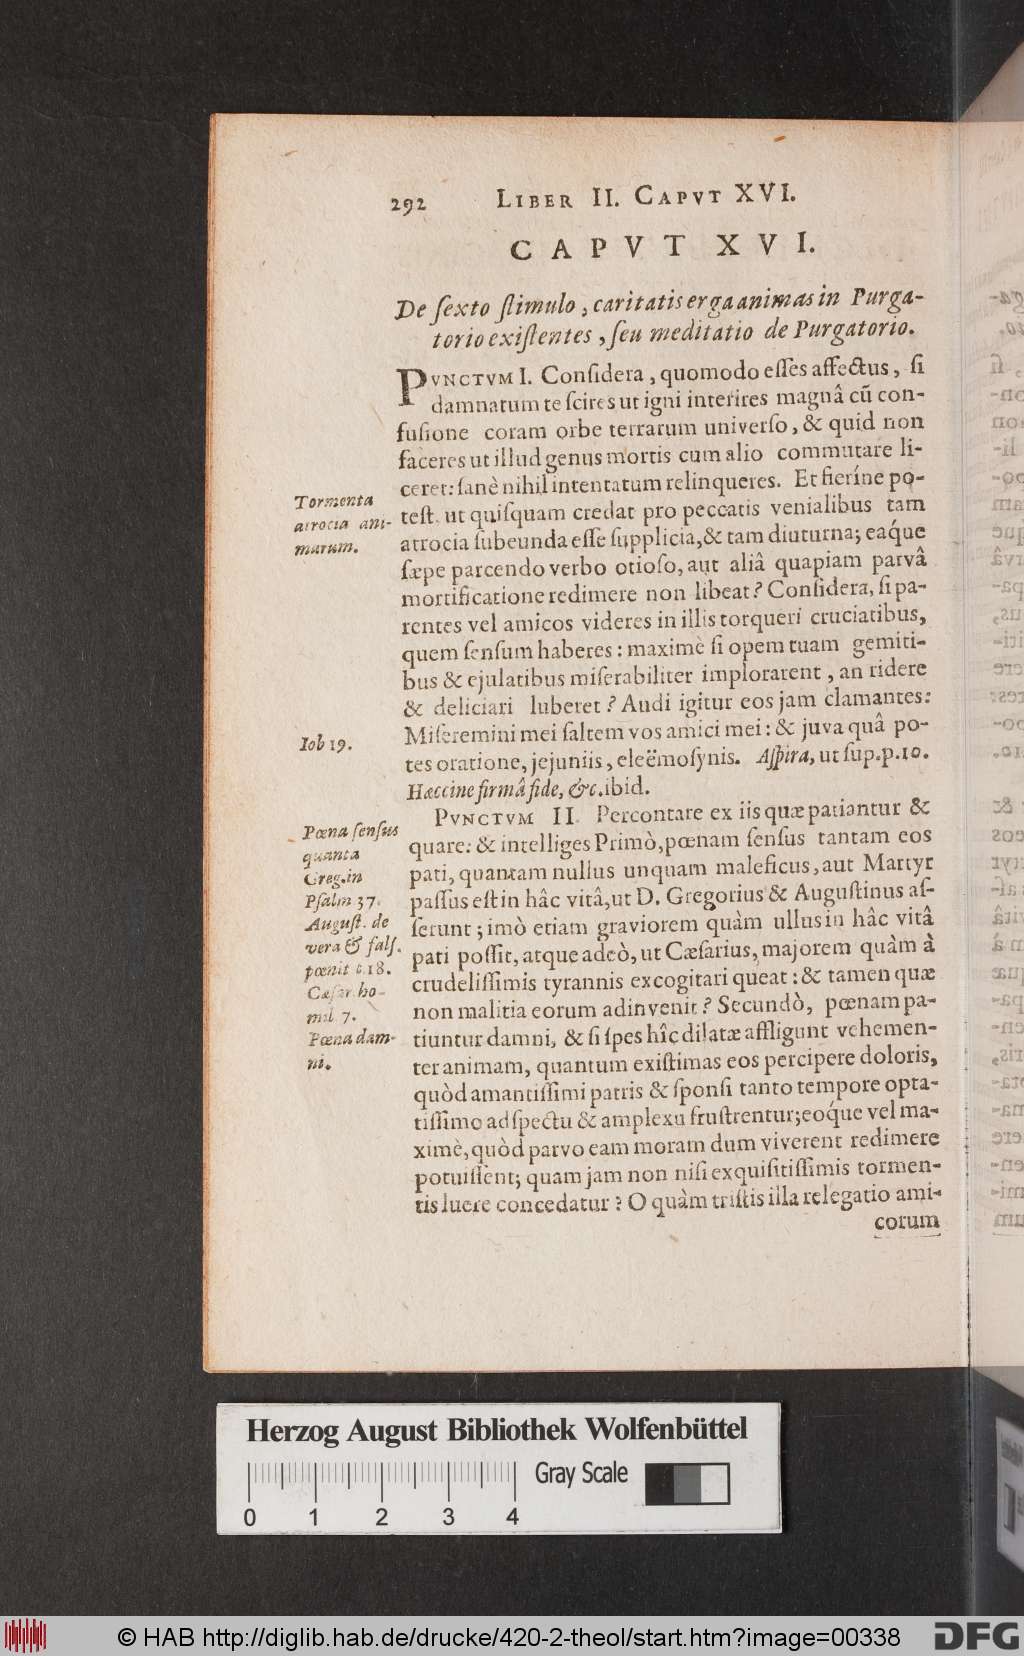 292 LIBER II. CAPVT XVI.
CAPVT XVI.
De ſexto ſtimulo, caritatis erga animas in Purga-
torio exiſtentes, ſeu meditatio de Purgatorio.
PVNCTVM I. Conſidera, quomodo eſſes affectus, ſi
damnatum te ſcires ut igni interires magnâ cũ con-
fuſione coram orbe terrarum univerſo, & quid non
faceres ut illud genus mortis cum alio commutare li-
ceret: ſanè nihil intentatum relinqueres. Et fieríne po-
Tormenta
atrocia ani-
marum.
teſt. ut quiſquam credat pro peccatis venialibus tam
atrocia ſubeunda eſſe ſupplicia, & tam diuturna; eáque
ſæpe parcendo verbo otioſo, aut aliâ quapiam parvâ
mortificatione redimere non libeat? Conſidera, ſi pa-
rentes vel amicos videres in illis torqueri cruciatibus,
quem ſenſum haberes: maximè ſi opem tuam gemiti-
bus & ejulatibus miſerabiliter implorarent, an ridere
& deliciari luberet? Audi igitur eos jam clamantes:
Iob 19.
Miſeremini mei ſaltem vos amici mei: & juva quâ po-
tes oratione, jejuniis, eleëmoſynis. Aſpira, ut ſup. p. 10.
Hæccine firmâ fide, &c. ibid.
PVNCTVM II. Percontare ex iis quæ patiantur &
Pœna ſenſus
quanta
Greg. in
Pſalm 37.
Auguſt. de
vera & falſ.
pœnit c. 18.
Cæſar. ho-
mil 7.
Pœna dam-
ni.
quare: & intelliges Primò, pœnam ſenſus tantam eos
pati, quantam nullus unquam maleficus, aut Martyr
paſſus eſt in hâc vitâ, ut D. Gregorius & Auguſtinus aſ-
ſerunt; imò etiam graviorem quàm ullus in hâc vitâ
pati poſſit, atque adeò, ut Cæſarius, majorem quàm à
crudeliſſimis tyrannis excogitari queat: & tamen quæ
non malitia eorum adinvenit? Secundò, pœnam pa-
tiuntur damni, & ſi ſpes hîc dilatæ affligunt vehemen-
ter animam, quantum exiſtimas eos percipere doloris,
quòd amantiſſimi patris & ſponſi tanto tempore opta-
tiſſimo adſpectu & amplexu fruſtrentur; eóque vel ma-
ximè, quòd parvo eam moram dum viverent redimere
potuiſſent; quam jam non niſi exquiſitiſſimis tormen-
tis luere concedatur? O quàm triſtis illa relegatio ami-
corum
Herzog August Bibliothek Wolfenbüttel
Gray Scale
0 1 2 3 4
© HAB http://diglib.hab.de/drucke/420-2-theol/start.htm?image=00338
DFG